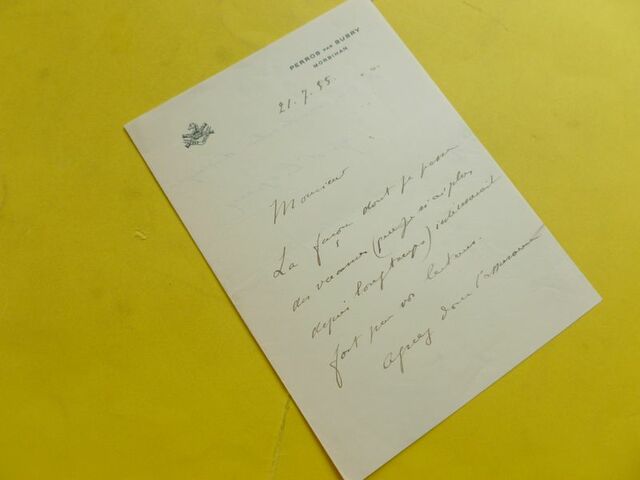 PERROS PAR BUBRY
MORBIHAN
21.7.55.
Monsieur
La façon dont je passe
des vacances (puisque je n'ai plus
depuis longtemps) intéresserait
fort peu vos lecteurs.
Agréez donc l'assurance